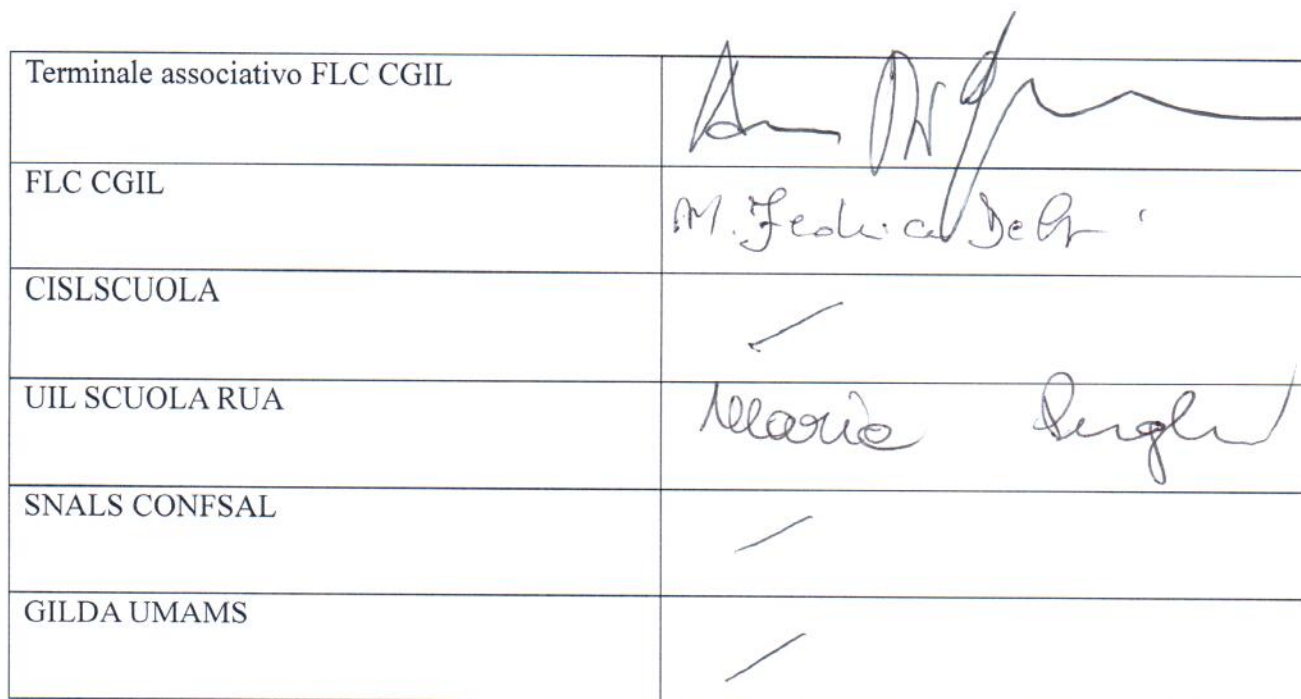 Terminale associativo FLC CGIL
FLC CGIL
M. Federica
CISLSCUOLA
UIL SCUOLA RUA
Maria
SNALS CONFSAL
GILDA UMAMS